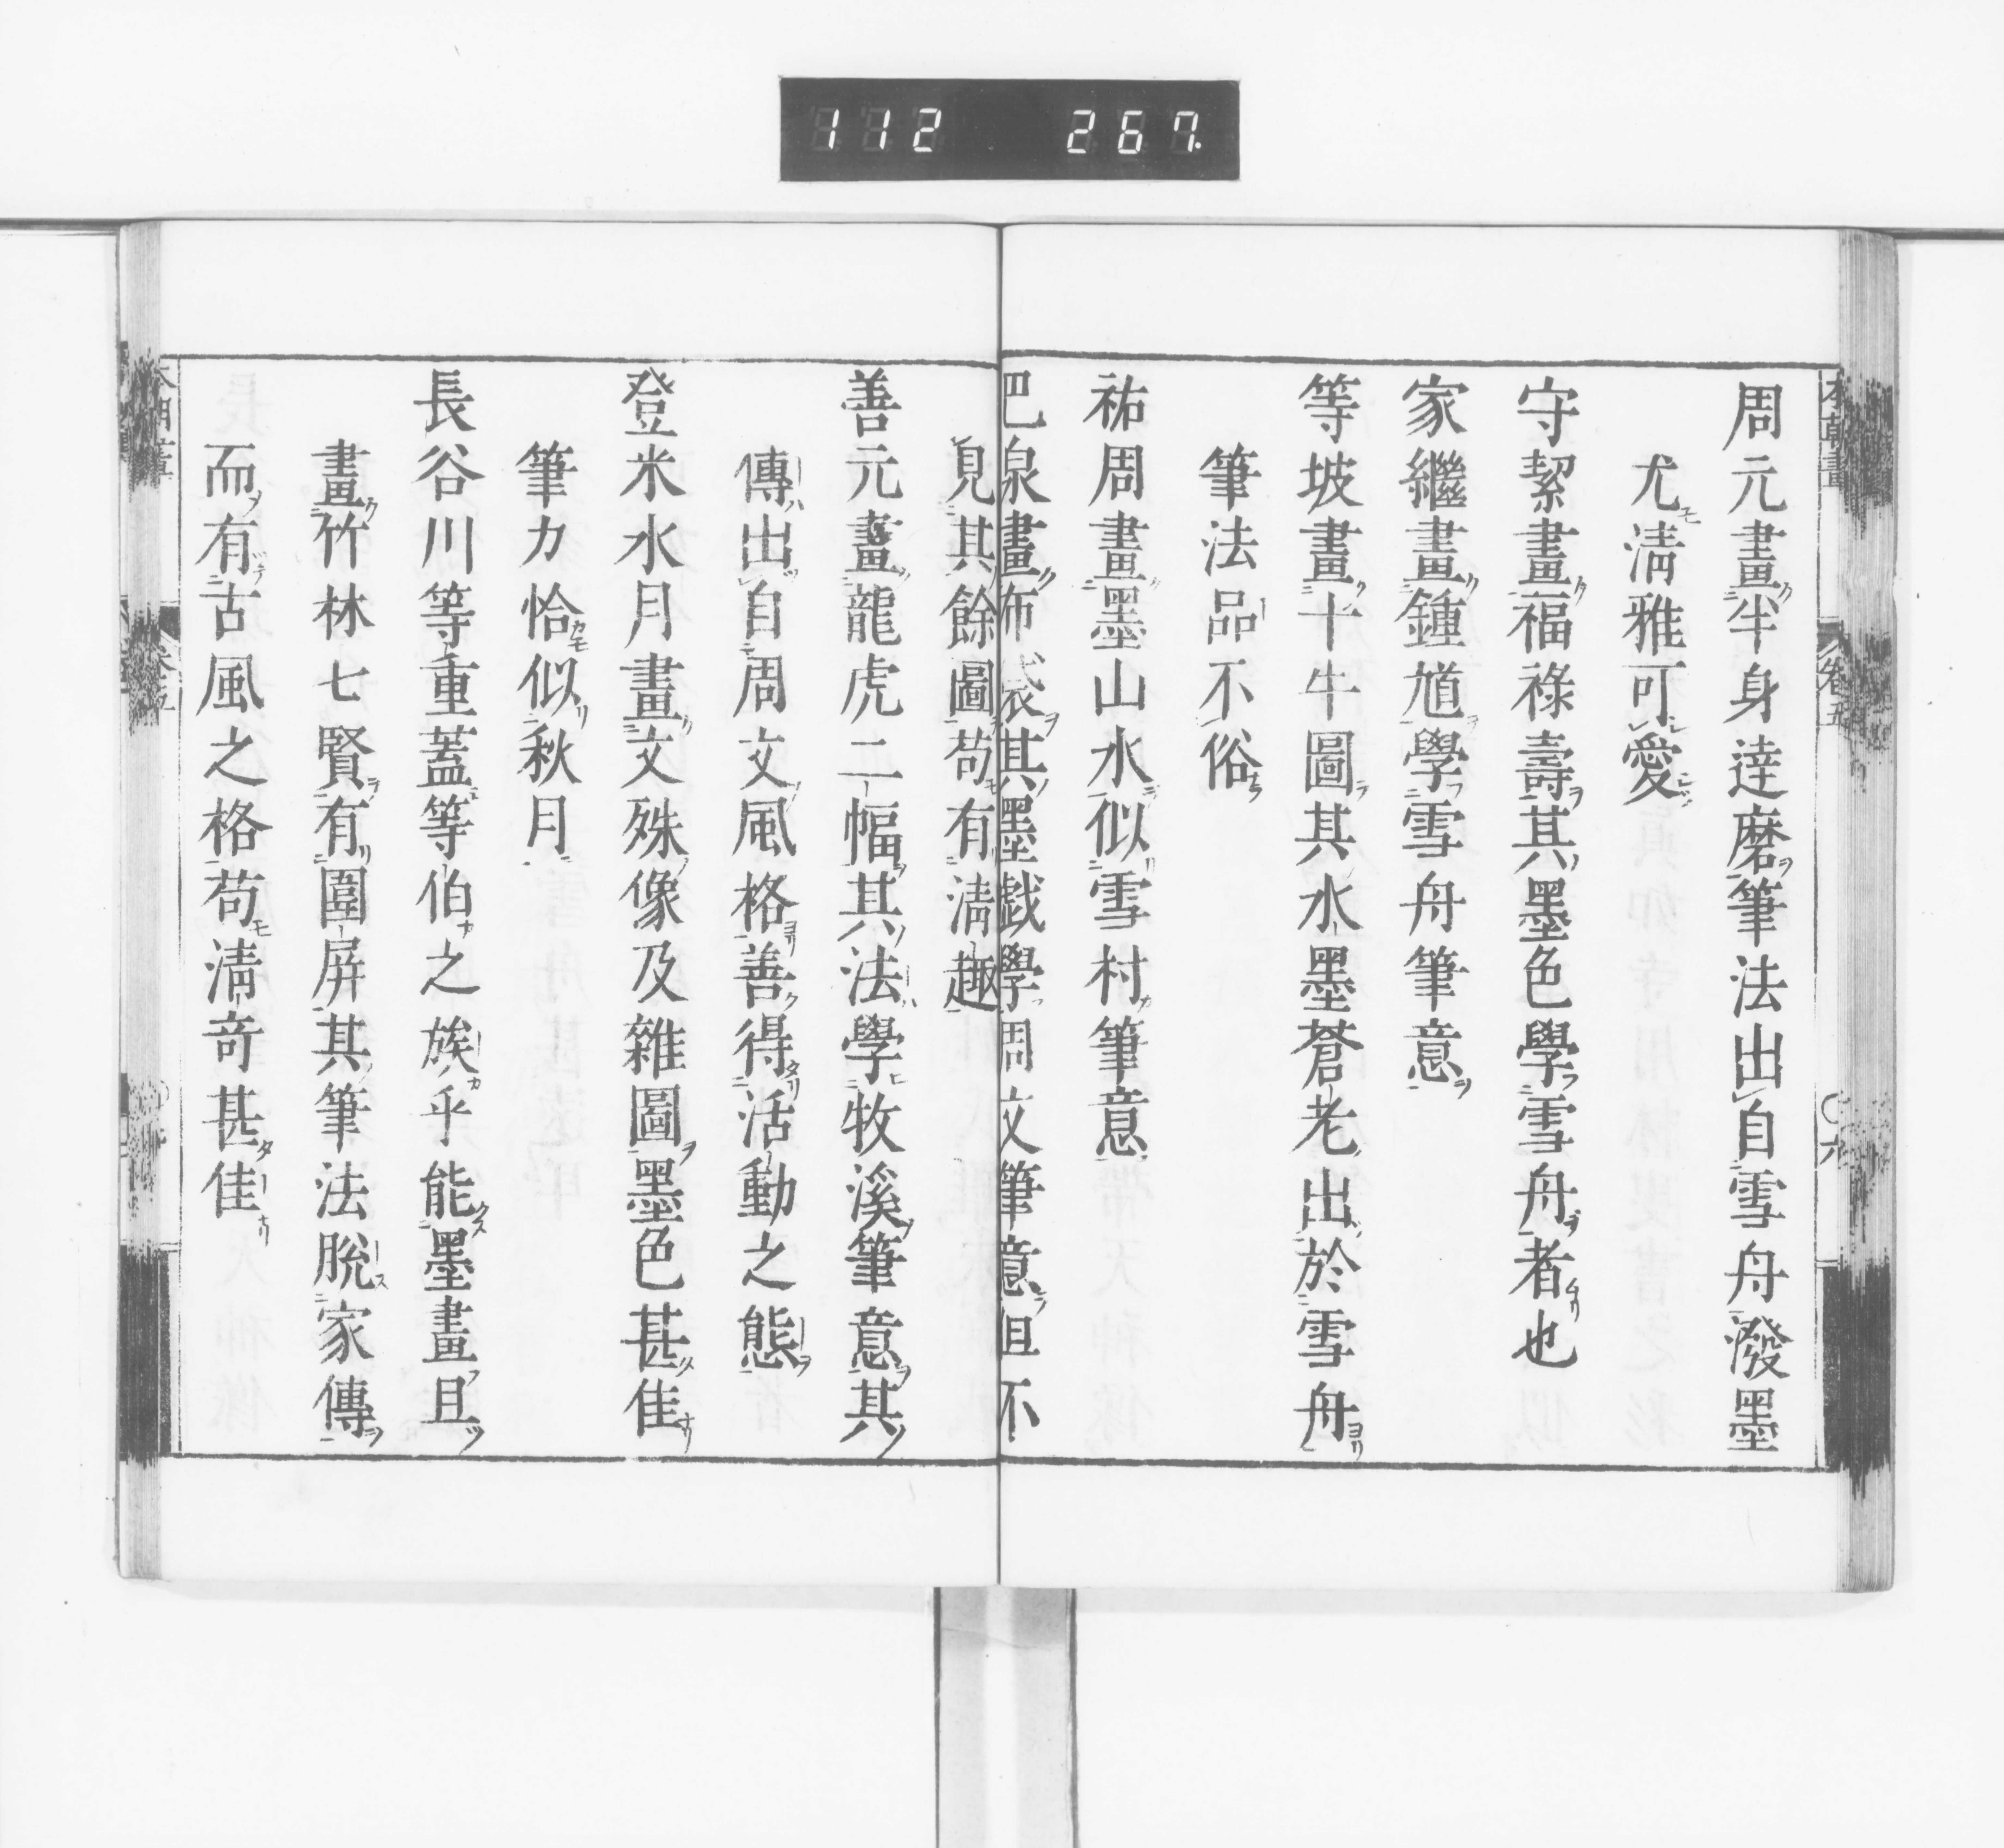 112 267.
周元畫半身達磨筆法出自雪舟潑墨
尤淸雅可愛
守絜畫福祿壽其墨色學雪舟者也
家繼畫鍾馗學雪舟筆意
等坡畫十牛圖其水墨蒼老出於雪舟
筆法品不俗
祐周畫墨山水似雪村筆意
巴泉畫布袋其墨戲學周文筆意但不
見其餘圖苟有淸趣
善元畫龍虎二幅其法學牧溪筆意其
傳出自周文風格善得活動之態
登米水月畫文殊像及雜圖墨色甚佳
筆力恰似秋月
長谷川等重蓋等伯之族乎能墨畫且
畫竹林七賢有圍屏其筆法脫家傳
而有古風之格苟淸奇甚佳